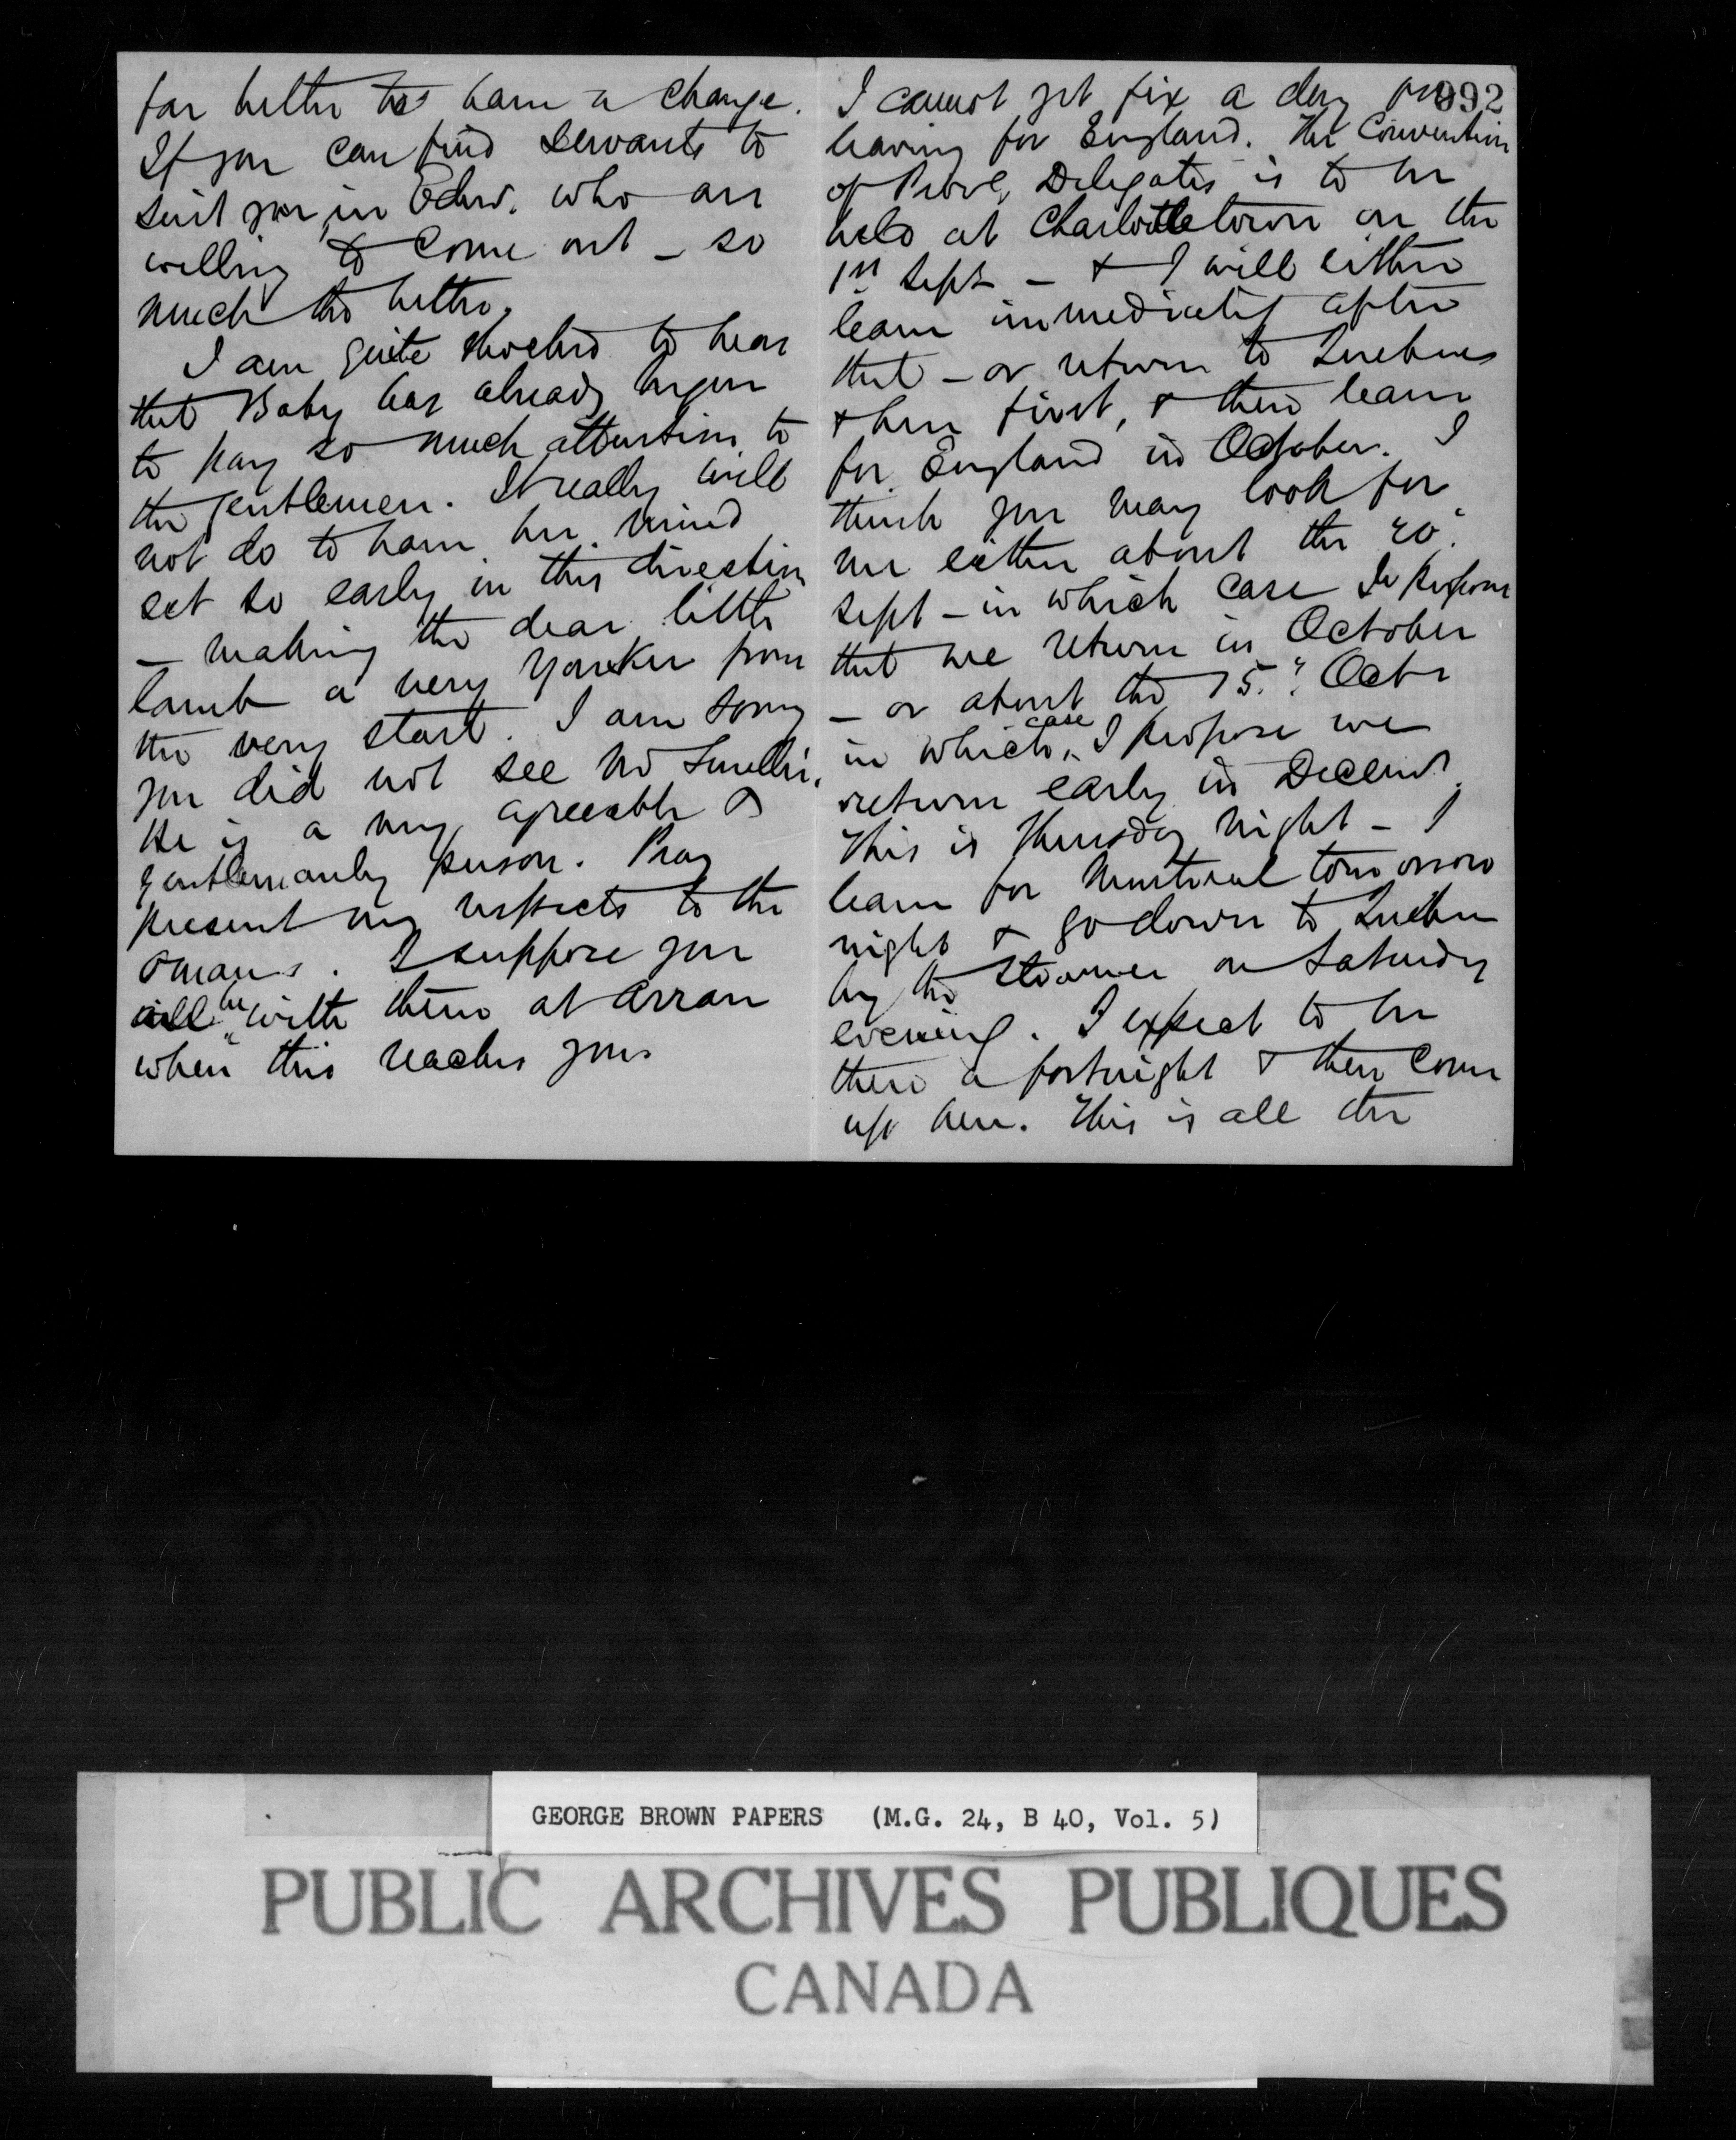 far better to have a change.
If you can find servants to
suit you in Edinr. who are
willing to come out – so
much the better.
I am quite shocked to hear
that Baby has already begun
to pay so much attention to
the gentlemen. It really will
not do to have her mind
set so early in this direction
– making the dear little
lamb a very Yankee from
the very start. I am sorry
you did not see Mr Smellie.
He is a very agreeable &
gentlemanly person. Pray
present my respects to the
Omans. I suppose you
will be with them at Arran
when this reaches you.
992
I cannot yet fix a day for
leaving for England. The Convention
of Provl. Delegates is to be
held at Charlottetown on the
1st Sept – & I will either
leave immediately after
that – or return to Quebec
& here first, & then leave
for England in October. I
think you may look for
me either about the 20"
Sept – in which case I propose
that we return in October
– or about the 15." Octr
in which case I propose we
return early in Decemr.
This is Thursday night – I
leave for Montreal tomorrow
night & go down to Quebec
by the steamer on Saturday
evening. I expect to be
there a fortnight & then come
up here. This is all the
GEORGE BROWN PAPERS (M.G. 24, B 40, Vol. 5)
PUBLIC ARCHIVES PUBLIQUES
CANADA